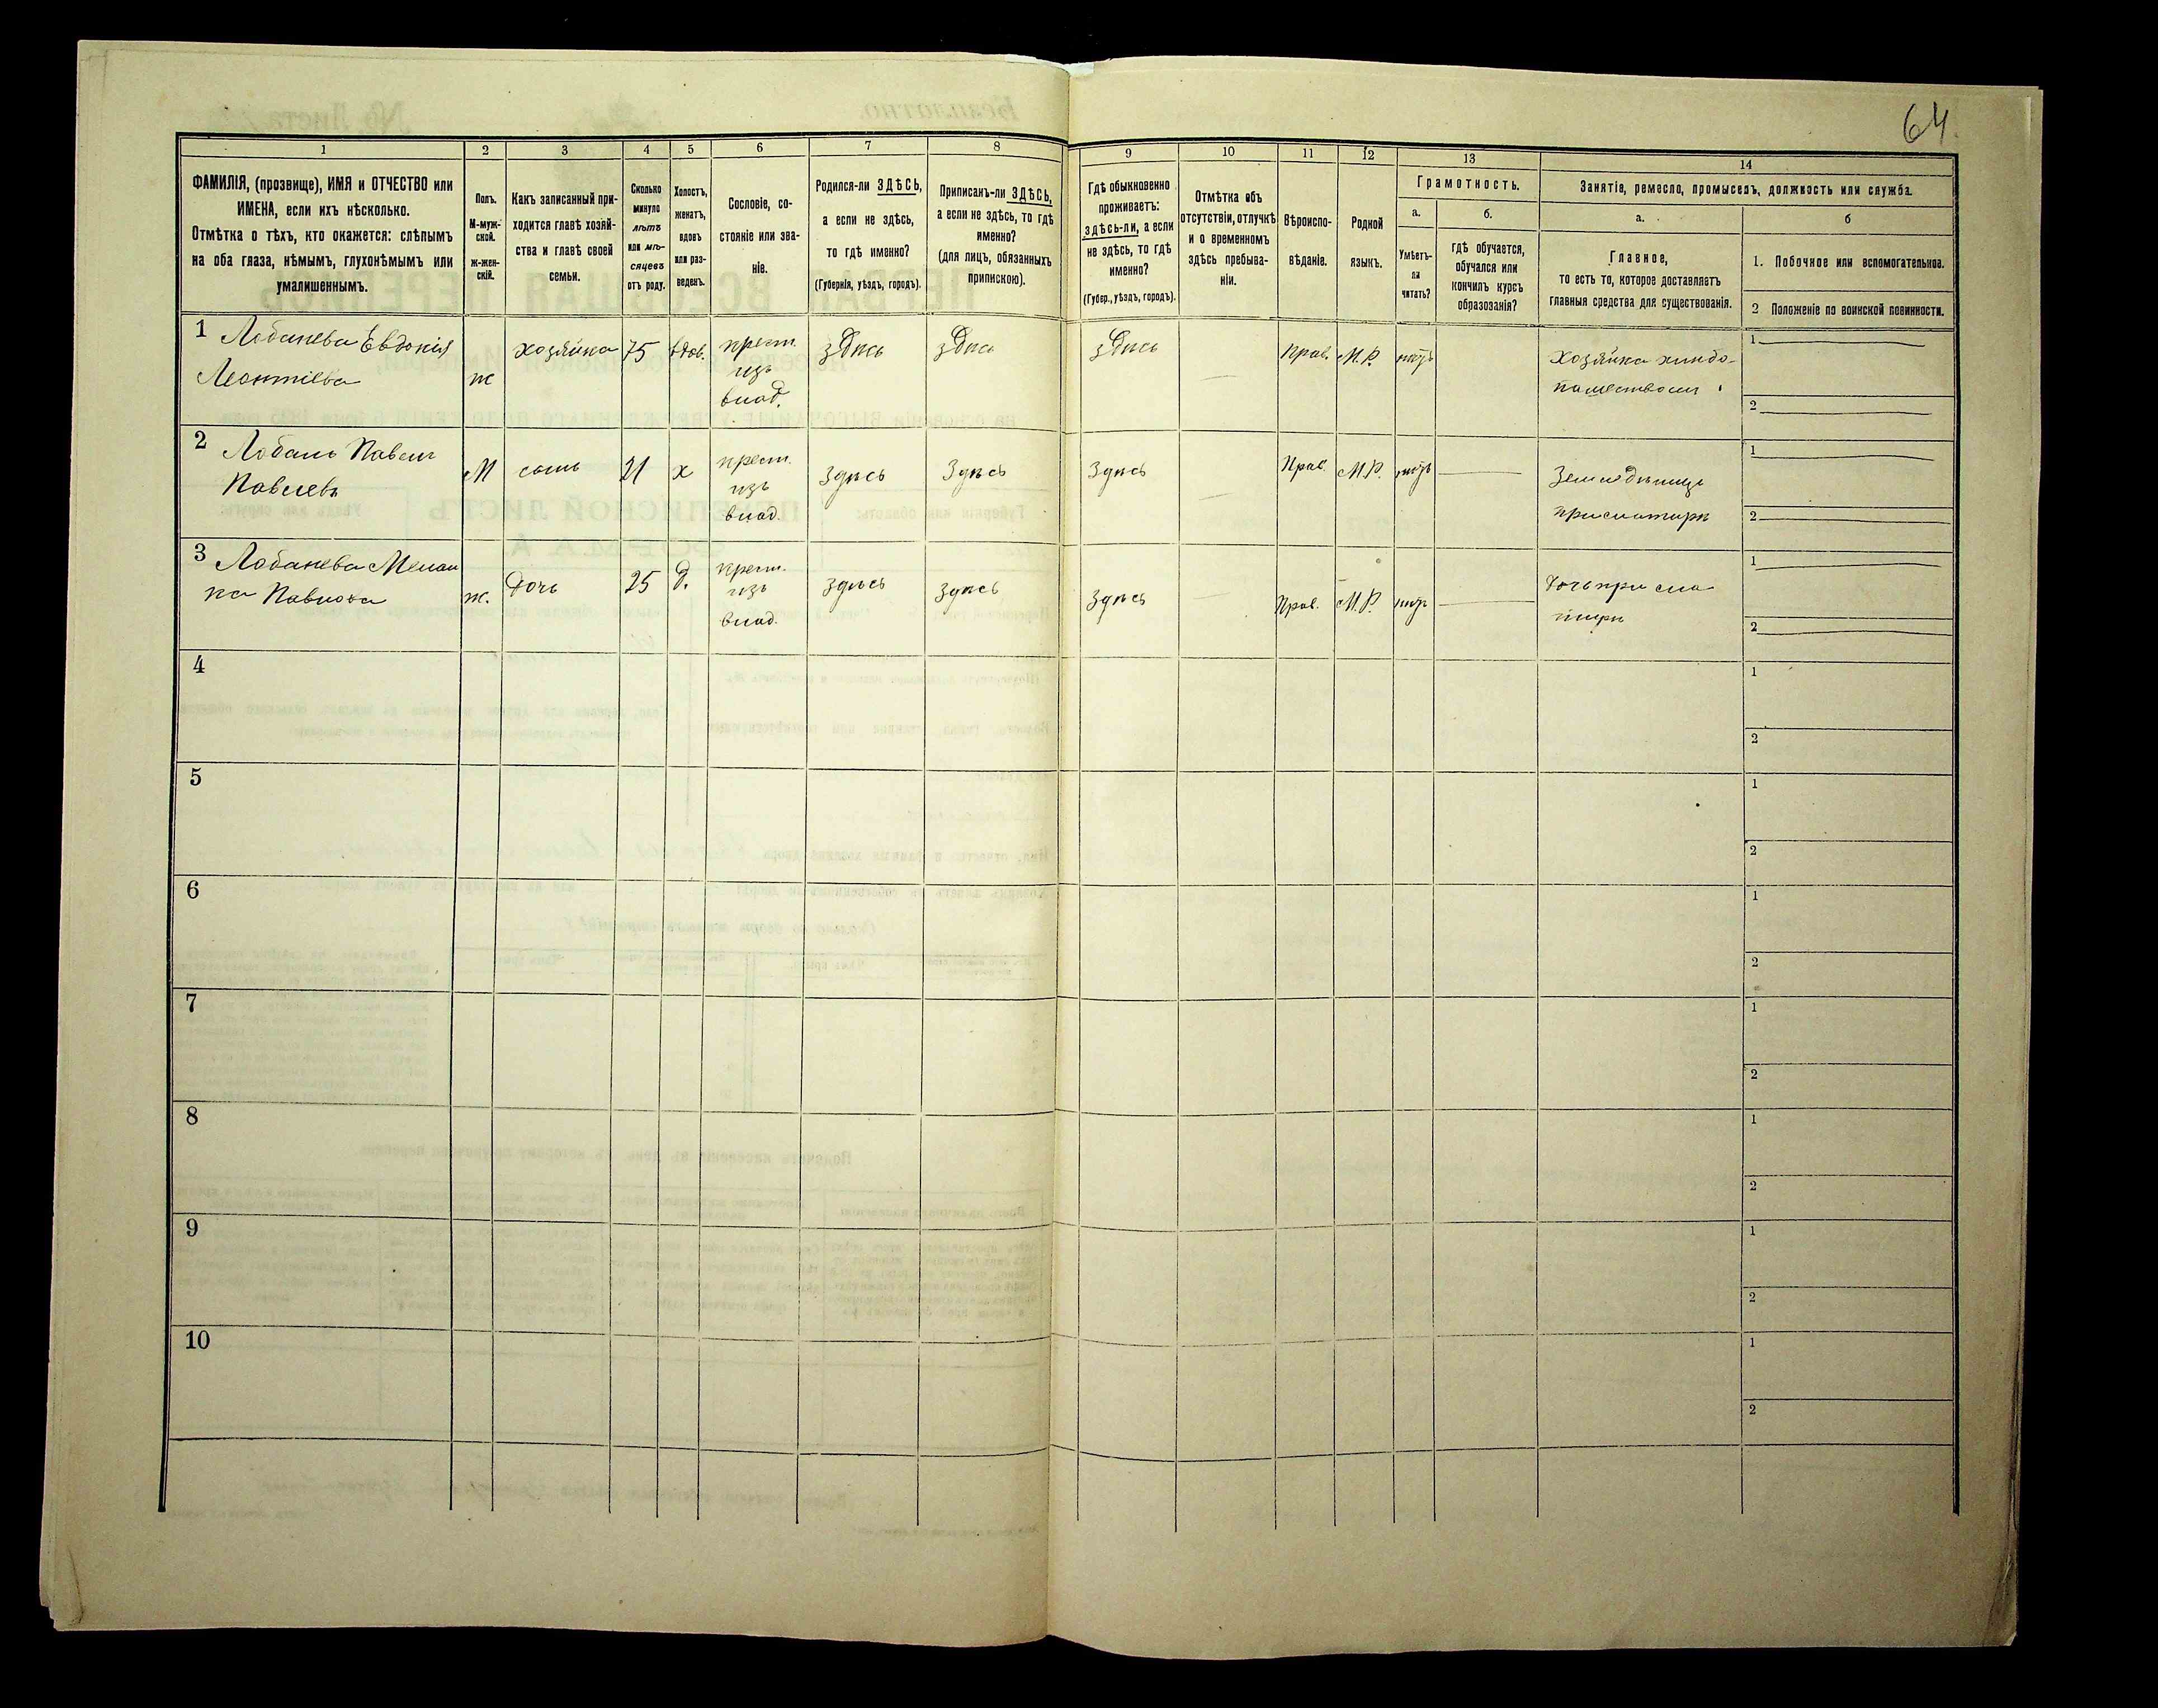 64
1
2
3
4
5
6
7
8
9
10
11
12
13
14
ФАМИЛІЯ, (прозвище), ИМЯ и ОТЧЕСТВО или
ИМЕНА, если ихъ нѣсколько.
Отмѣтка о тѣхъ, кто окажется: слѣпымъ
на оба глаза, нѣмымъ, глухонѣмымъ или
умалишеннымъ.
Полъ.
М-муж-
ской.
ж-жен-
скій.
Какъ записанный при-
ходится главѣ хозяй-
ства и главѣ своей
семьи.
Сколько
минуло
лѣтъ
или мѣ-
сяцевъ
отъ роду.
Холостъ,
женатъ,
вдовъ
или раз-
веденъ.
Сословіе, со-
стояніе или зва-
ніе.
Родился-ли ЗДѢСЬ,
а если не здѣсь,
то гдѣ именно?
(Губернія, уѣздъ, городъ).
Приписанъ-ли ЗДѢСЬ,
а если не здѣсь, то гдѣ
именно?
(для лицъ, обязанныхъ
припискою).
Гдѣ обыкновенно
проживаетъ:
здѣсь-ли, а если
не здѣсь, то гдѣ
именно?
(Губер., уѣздъ, городъ).
Отмѣтка объ
отсутствіи, отлучкѣ
и о временномъ
здѣсь пребыва-
ніи.
Вѣроиспо-
вѣданіе.
Родной
языкъ.
Грамотность.
а.
Умѣетъ-
ли
читать?
б.
гдѣ обучается,
обучался или
кончилъ курсъ
образованія?
Занятіе, ремесло, промыселъ, должность или служба.
а.
Главное,
то есть то, которое доставляетъ
главныя средства для существованія.
б
1. Побочное или вспомогательное.
2 Положеніе по воинской повинности.
1 Лобанева Евдокія
Леонтіева
ж
хозяйка
75
вдов.
крест.
изъ
влад.
здѣсь
здѣсь
здѣсь
Прав.
М.Р.
нѣтъ
Хозяйка
1
2
2 Лобань Павелъ
Павлевъ
М
сынъ
21
х
крест.
изъ
влад.
Здѣсь
Здѣсь
Здѣсь
Прав.
М.Р.
нѣтъ
Земледѣлецъ
при матери
1
2
3 Лобанева
Павлова
ж.
дочь
25
д.
крест.
изъ
влад.
здѣсь
здѣсь
здѣсь
Прав.
М.Р.
нѣтъ
дочь при ма
тери
1
2
4
1
2
5
1
2
6
1
2
7
1
2
8
1
2
9
1
2
10
1
2